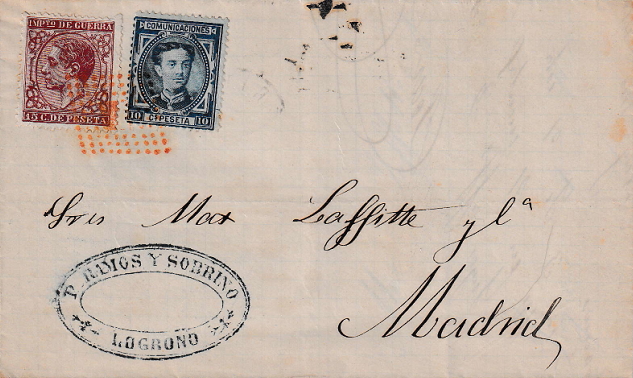 IMPTO DE GUERRA
15 C. DE PESETA
COMUNICACIONES
10 CS PESETA 10
Sres Max Laffitte y Cª
Madrid
P. RAMOS Y SOBRINO
LOGROÑO